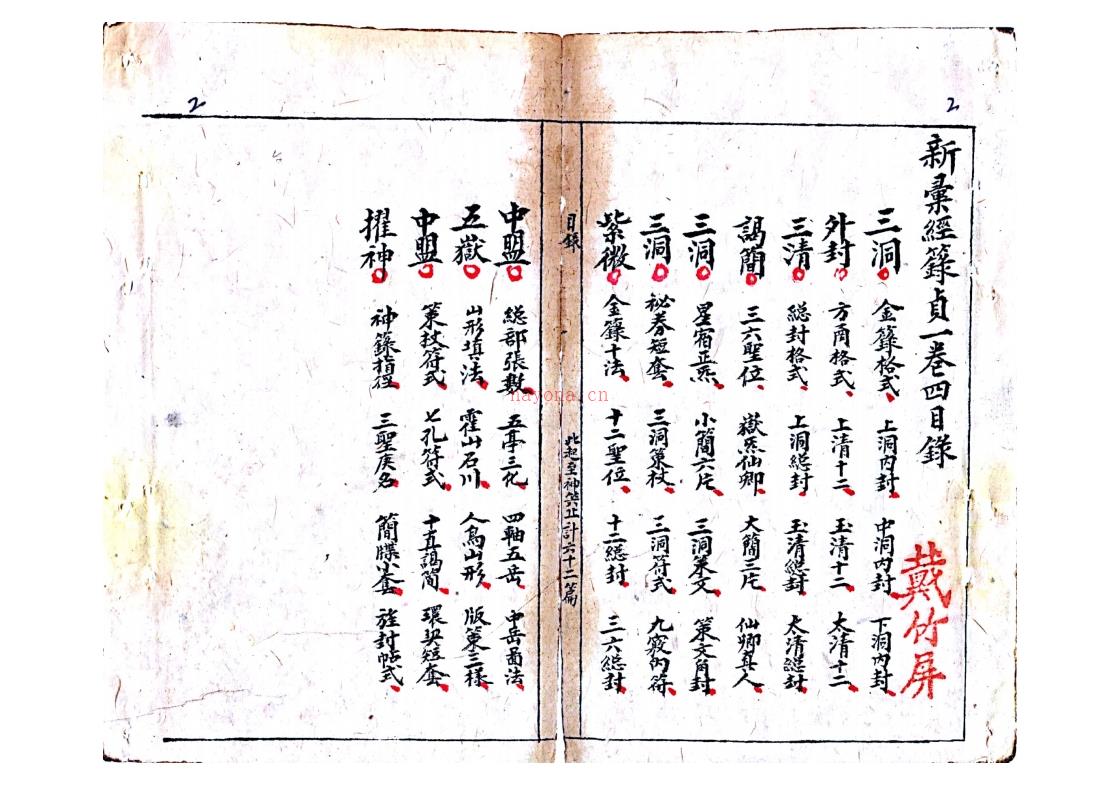 2
2
新彙經籙貞一卷四目錄
戴竹屏
三洞 金籙格式、 上洞內封、 中洞內封 下洞內封、
外封 方角格式、 上清十二、 玉清十二、 太清十二、
三清 總封格式、 上洞總封、 玉清總封 太清總封、
謁簡 三六聖位、 嶽炁仙卿、 大簡三片、 仙卿真人
三洞 星宿正炁、 小簡六片、 三洞策文、 策文角封、
三洞 祕券短套、 三洞策杖、 三洞符式、 九竅內符、
紫微 金籙十法、 十二聖位、 十二總封、 三六總封、
目錄 此起至神筞止計六十二篇
中盟 總部張數、 五亭三化、 四軸五岳、 中岳啚法、
五嶽 山形填法、 霍山石川、 人鳥山形、 版策三樣、
中盟 策杖符式、 七孔符式、 十直謁簡、 環券短套、
擢神 神籙指徑、 三聖庚名 簡牒小套、 旌封帖式、
nayona.cn